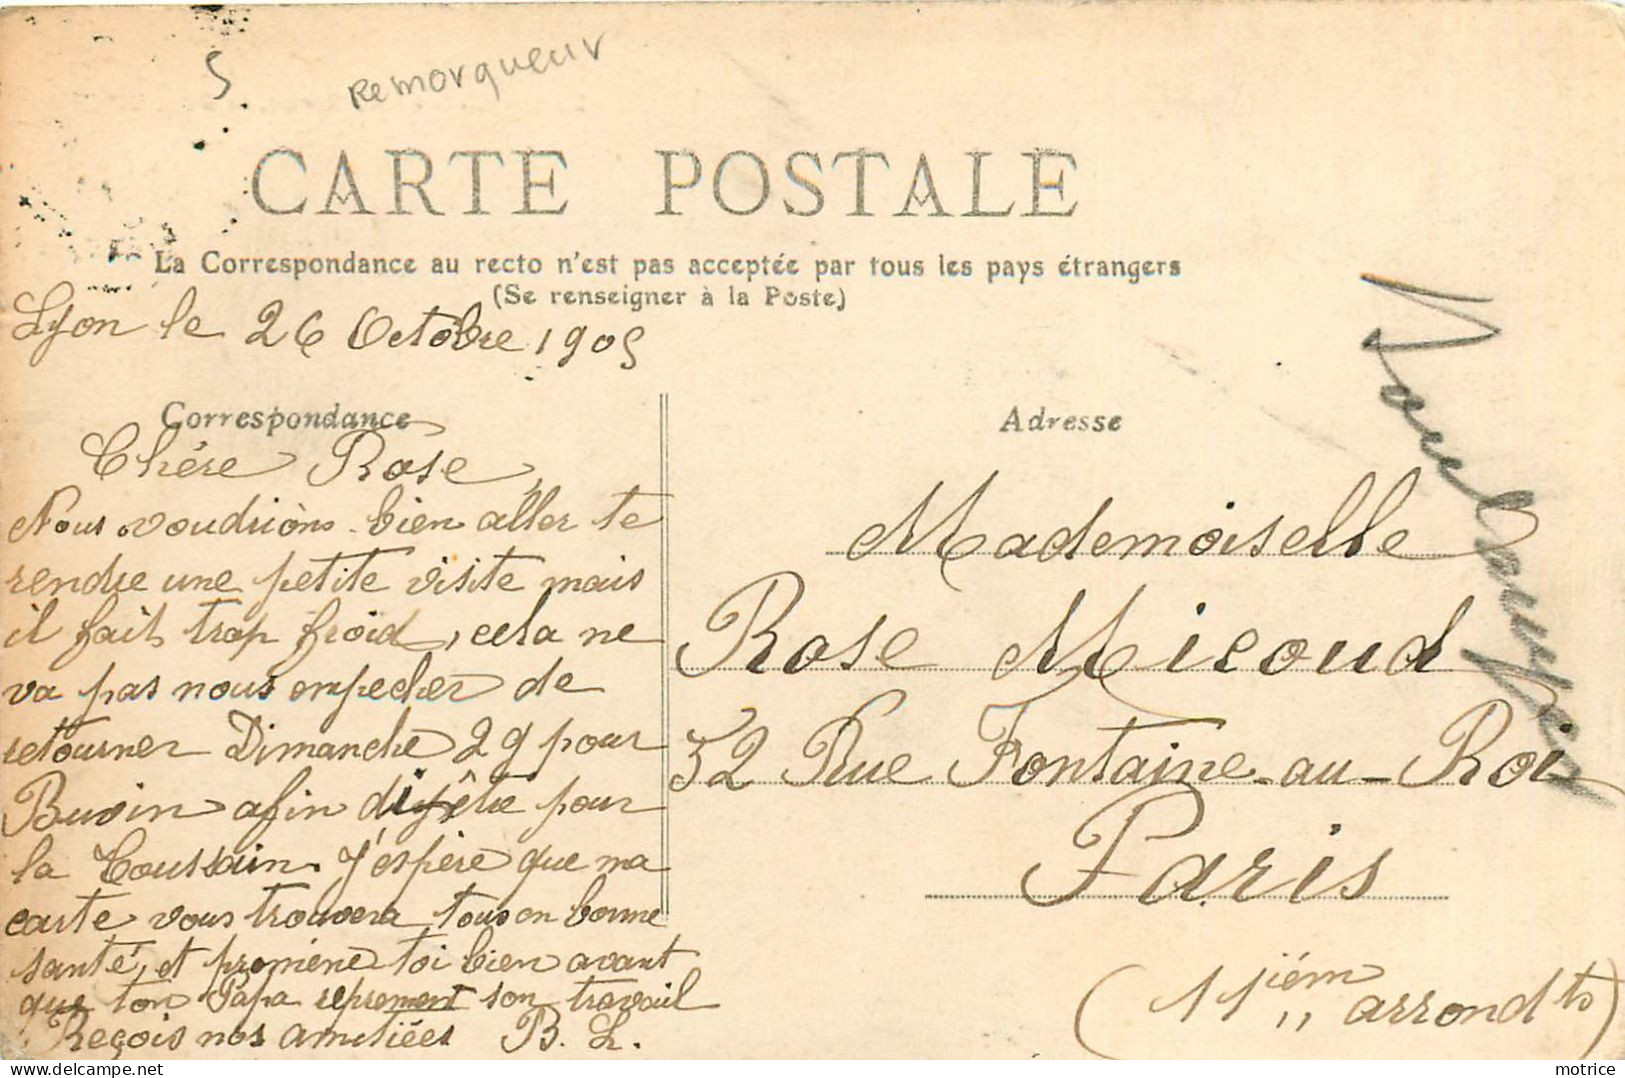 5
Remorqueur
CARTE POSTALE
La Correspondance au recto n'est pas acceptée par tous les pays étrangers
(Se renseigner à la Poste)
Lyon le 26 Octobre 1905
Correspondance
Chére Rose,
Nous voudrions bien aller te
rendre une petite visite mais
il fait trop froid, cela ne
va pas nous empecher de
retourner Dimanche 29 pour
Buvin afin d'y être pour
la Toussain. J'espère que ma
carte vous trouvera tous en bonne
santé, et promène toi bien avant
que ton Papa reprement son travail
Reçois nos amitiées B. L.
Adresse
Mademoiselle
Rose Micoud
52 Rue Fontaine-au-Roi
Paris
(11iém arrondts)
motrice